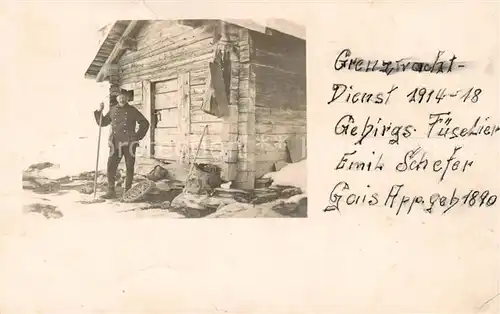 Grenzwacht-
Dienst 1914-18
Gebirgs. Füselier
Emil Schefer
Gais App. geb 1890